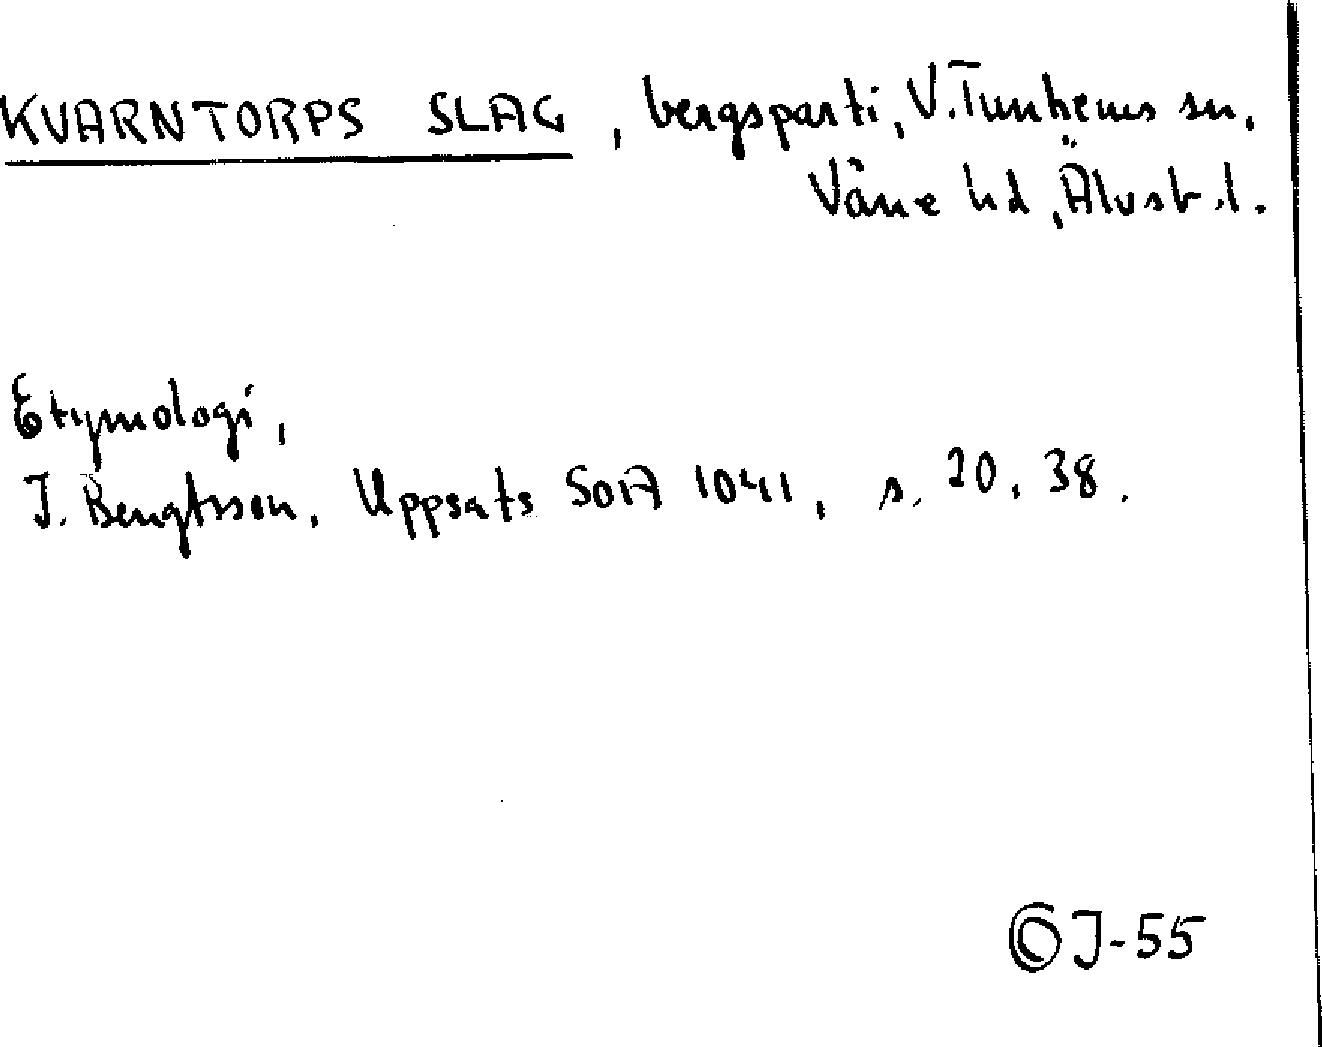 KVARNTORPS SLAG, bergsparti, V. Tunhems sn,
Väne hd, Älvsb. l.
Etymologi,
J. Bengtsson, Uppsats SOA 1041, s. 20, 38.
©J-55